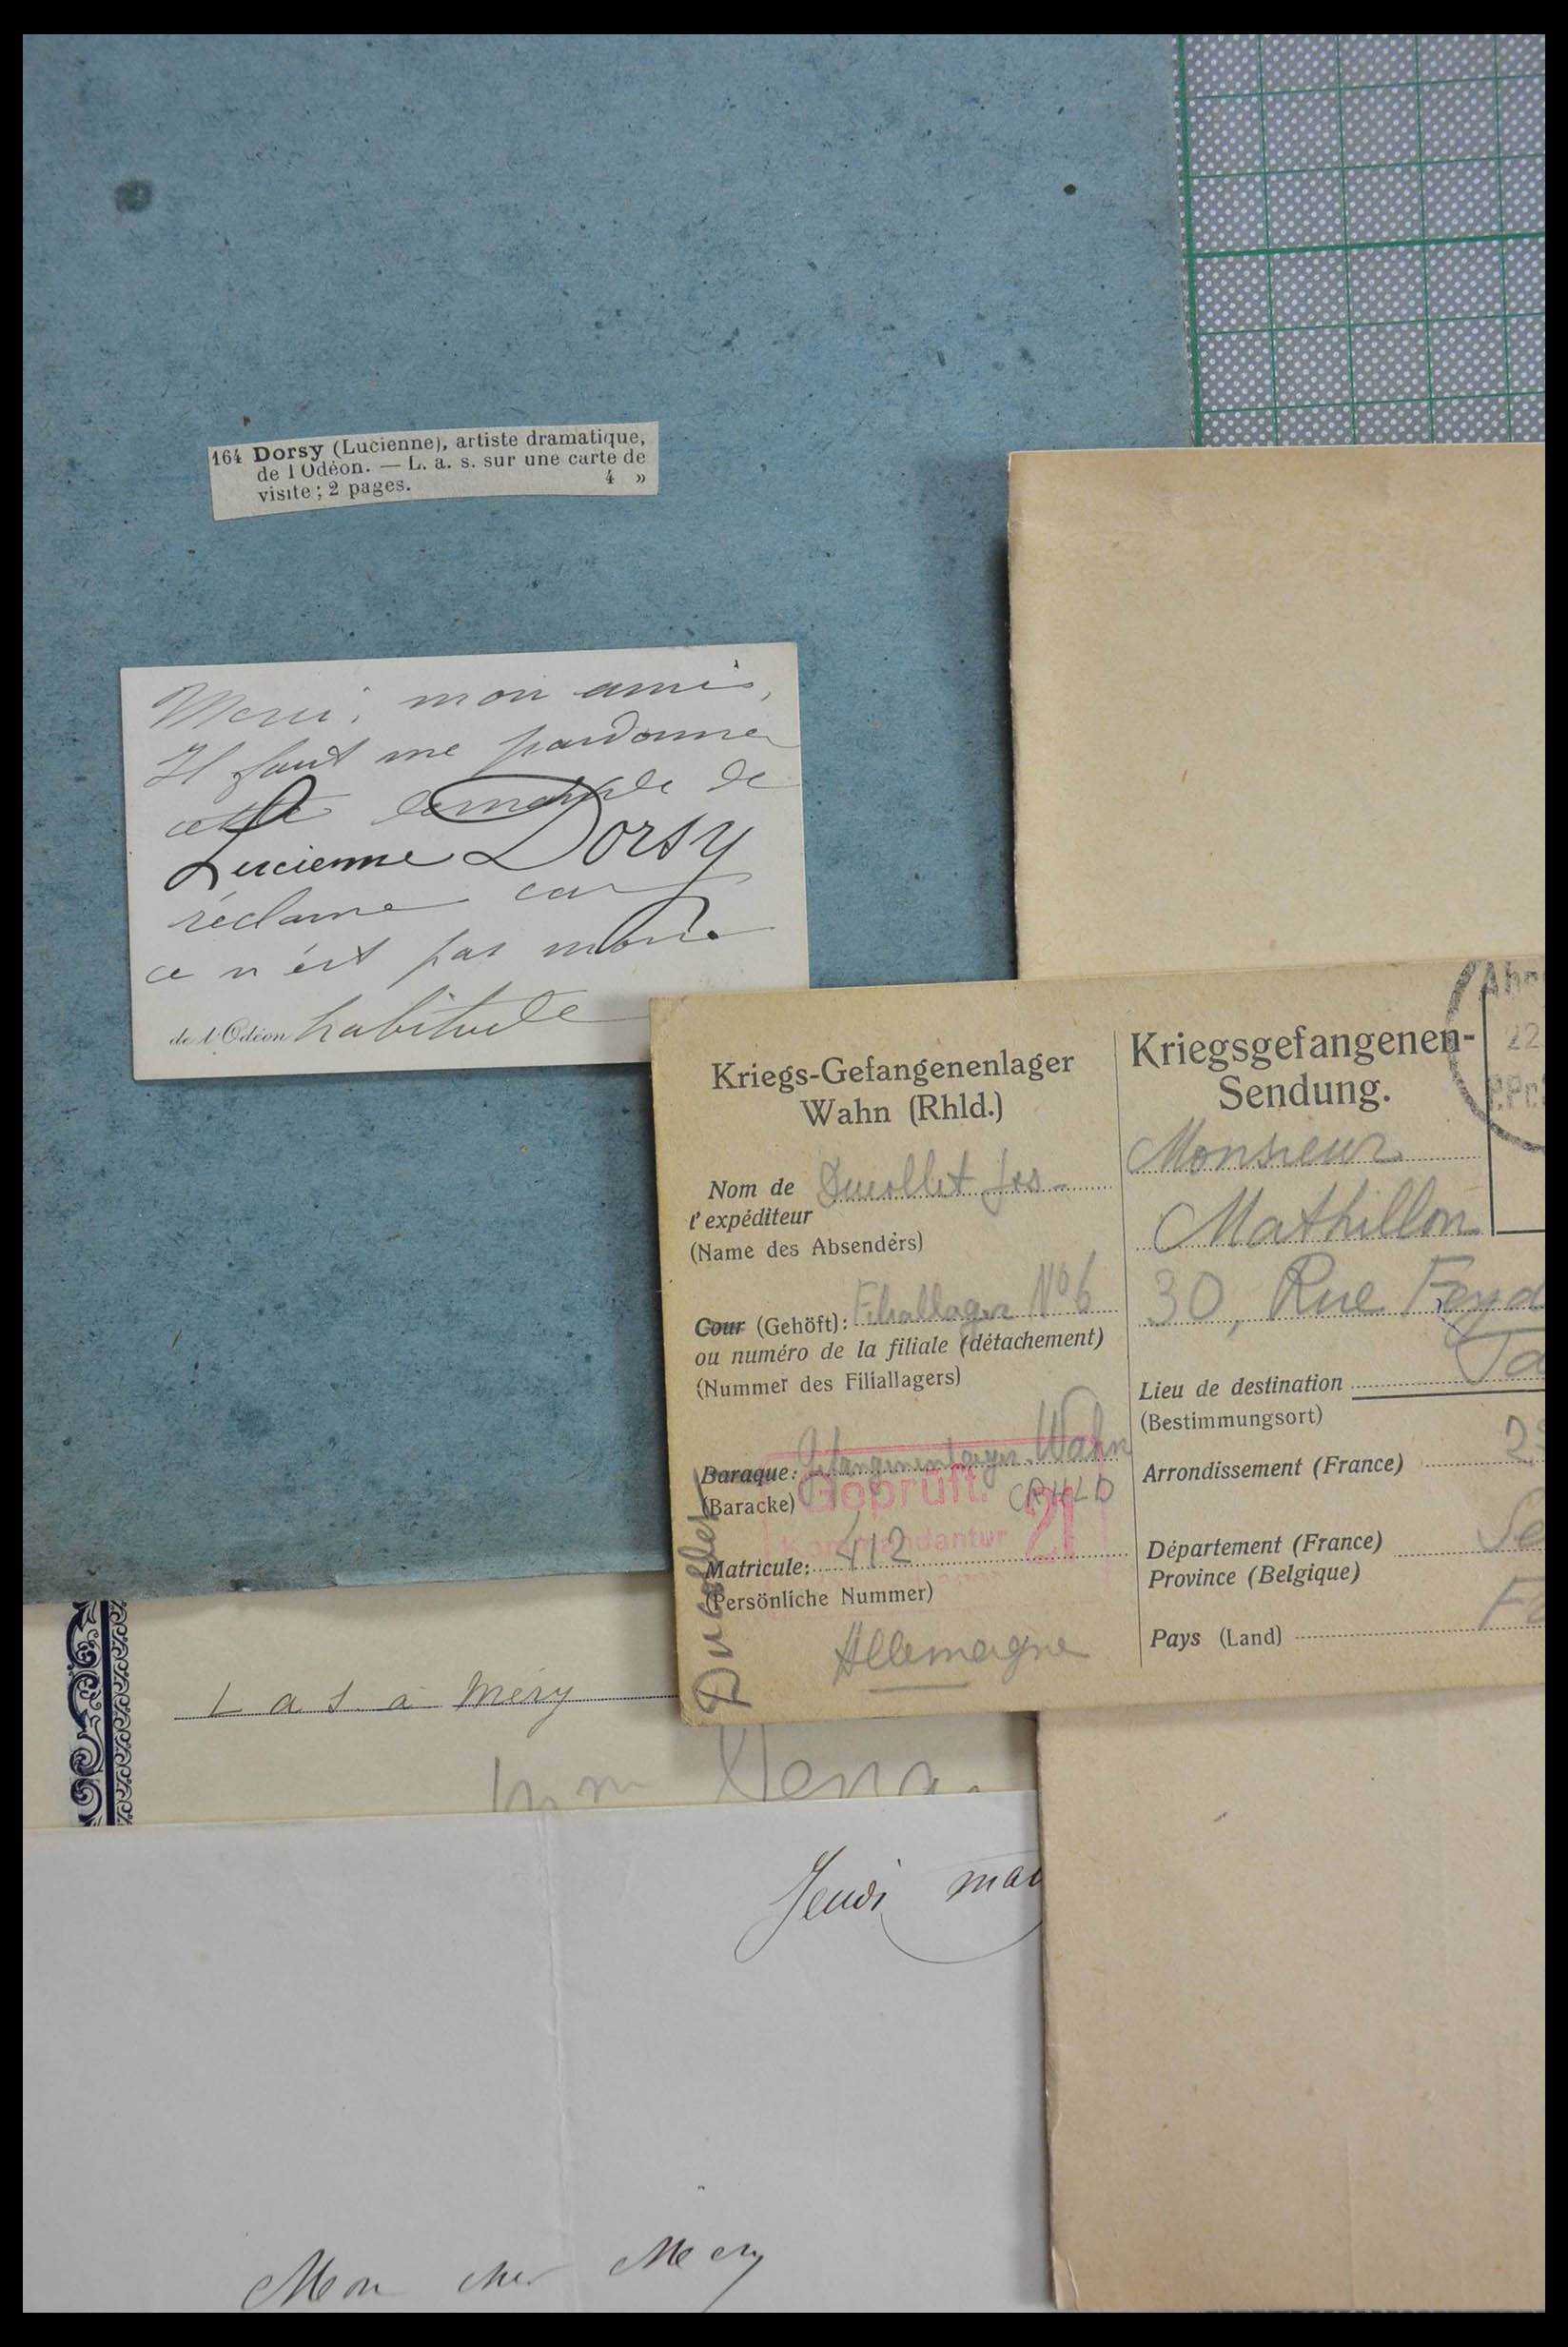 164 Dorsy (Lucienne), artiste dramatique,
de l'Odéon. — L. a. s. sur une carte de
visite ; 2 pages. 4 »
Merci, mon ami,
Il faut me pardonner
cette demande de
Lucienne Dorsy
réclame car
ce n'est pas mon
de l'Odéon habitude
Kriegs-Gefangenenlager
Wahn (Rhld.)
Nom de Ducollet Jos-
l'expéditeur
(Name des Absenders)
Cour (Gehöft): Filiallager No 6
ou numéro de la filiale (détachement)
(Nummer des Filiallagers)
Baraque: Gefangenenlager Wahn
(Baracke) (RHLD
Geprüft.
Kommandantur 21
Matricule: 412
(Persönliche Nummer)
Allemagne
Ducollet
Kriegsgefangenen-
Sendung.
22
Monsieur
Mathillon
30, Rue Feyd
Lieu de destination
(Bestimmungsort)
Arrondissement (France) 2
Département (France) Se
Province (Belgique)
Pays (Land) F
L a s. à Méry
Jeudi
Mon cher Mery